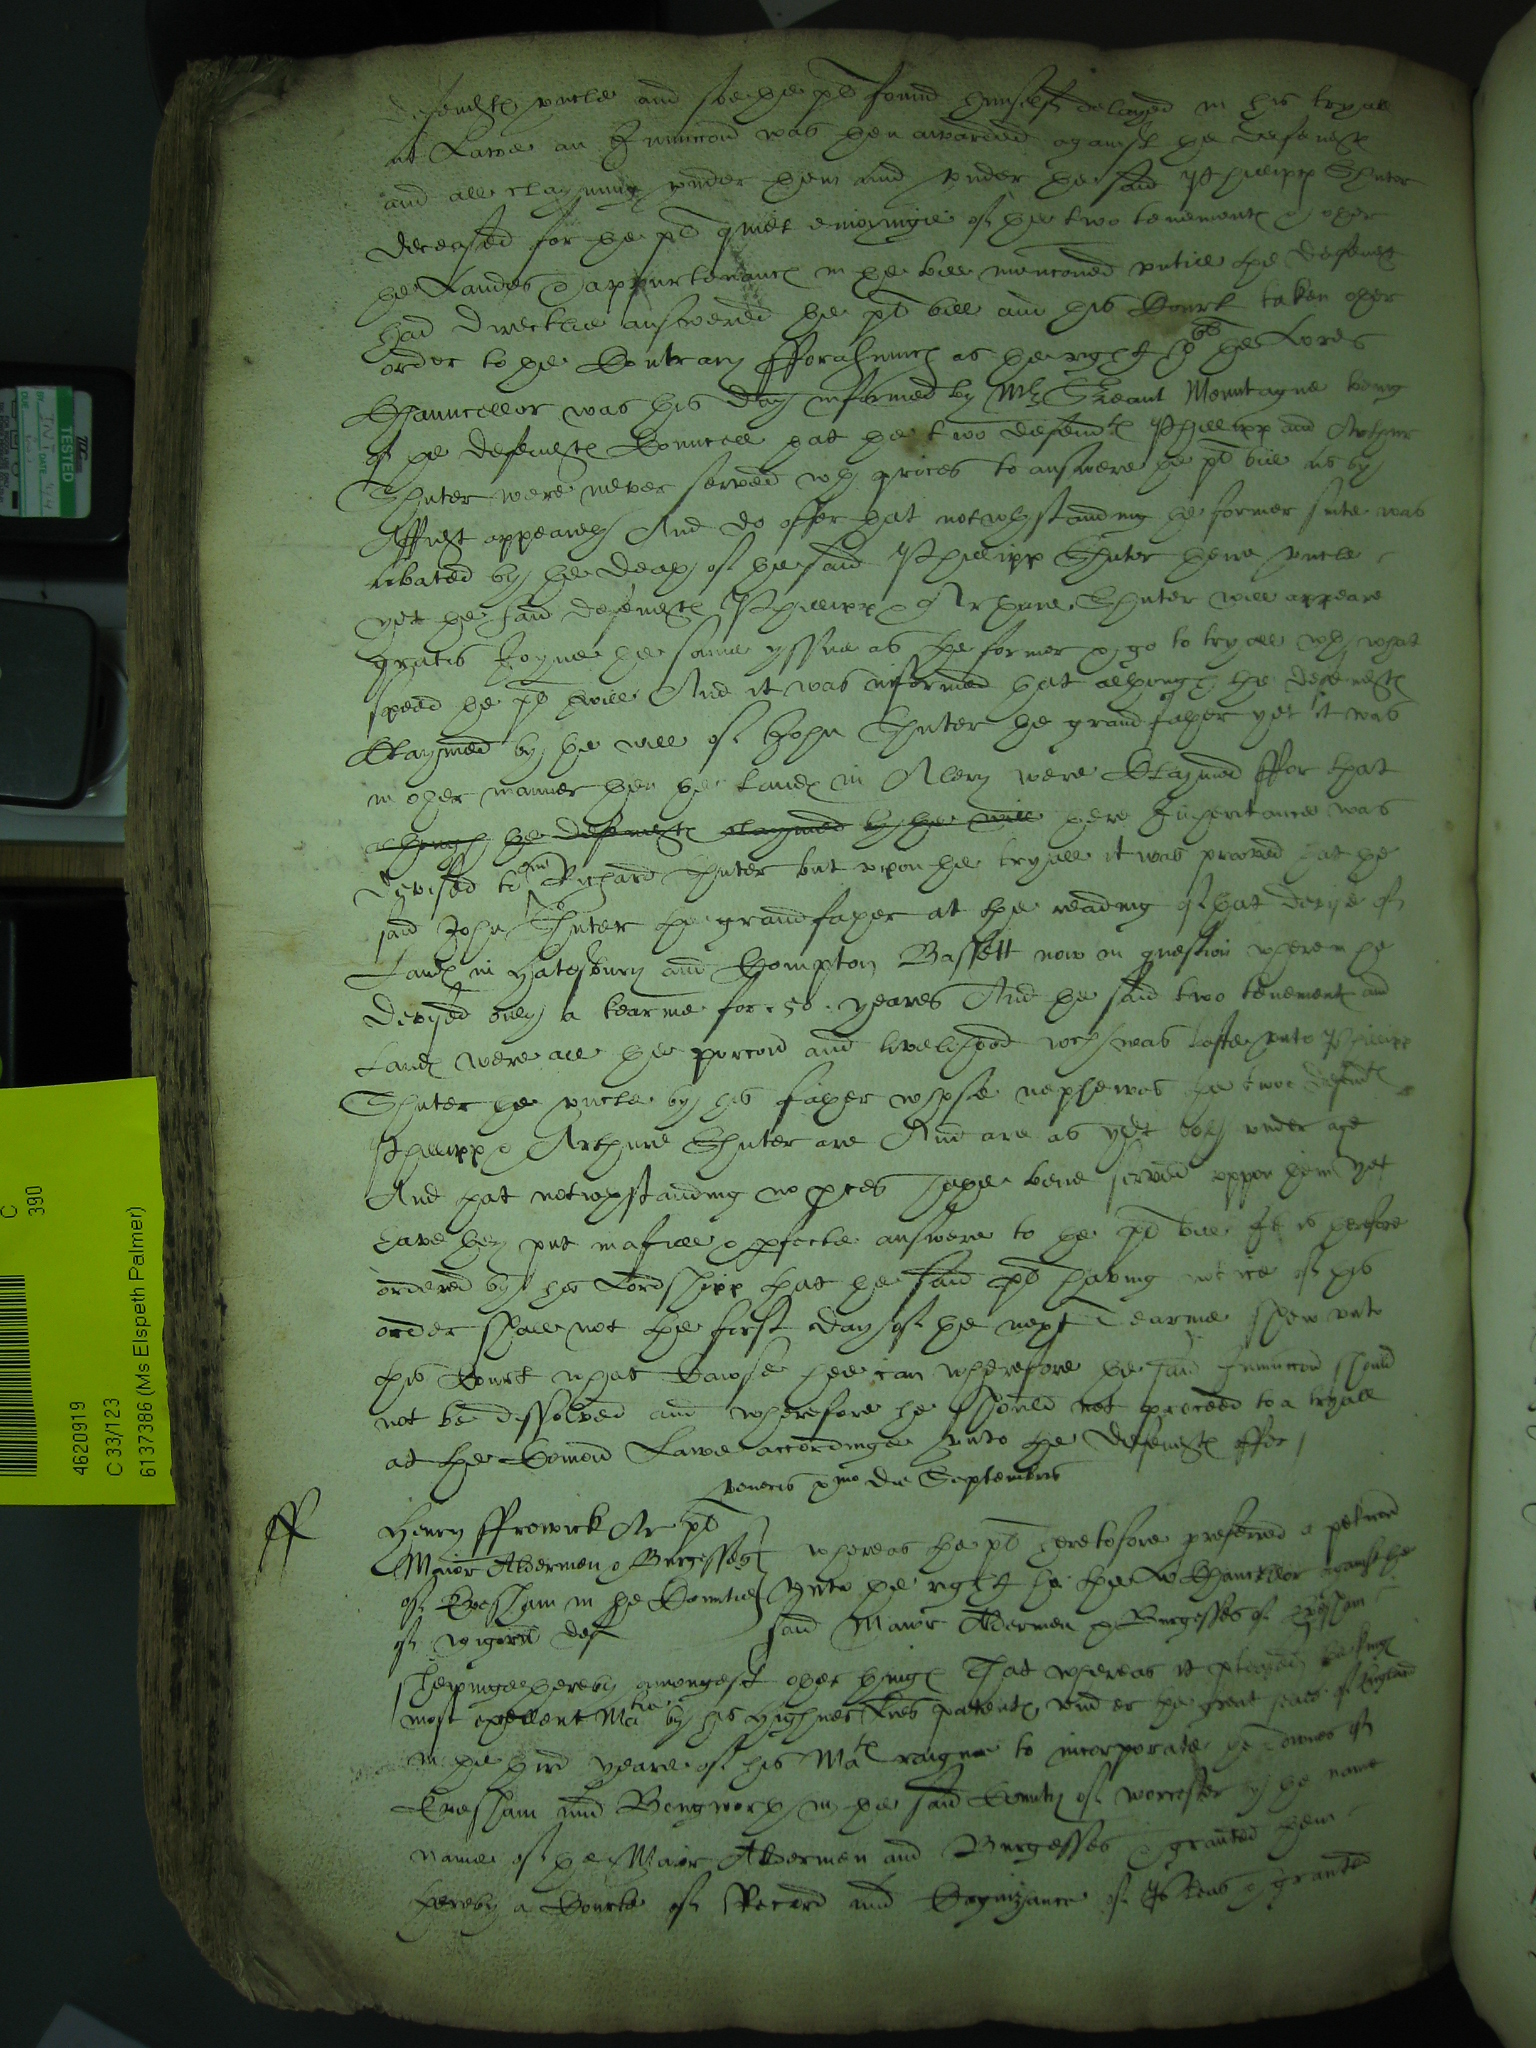 defendtes vncle and soe the plt found himselfe delayed in his tryall
at Lawe an Iniunccon was then awarded against the defendtes
and all clayming vnder them and vnder the said Phillipp Shuter
deceased for the plt quiet enioyinge of the two tenementes & other
the Landes & appurtenances in the bill menconed vntill the defendtes
had directlie answered the plt bill and this Court taken other
order to the Contrary fforasmuch as the right ho:ble the Lord
Chauncellor was this day informed by Mr Sreant Mountague being
of the defendtes Councell that the two defendtes Phillipp and Arthur
Shuter were never served wth proces to answere the plt bill as by
Affidt appeareth And do offer that notwthstanding the former suite was
abated by the death of the said Phillipp Shuter there vncle
yet the said defendtes Phillipp & Arthure Shuter will appeare
gratis Ioyne the same yssue as the former & go to tryall wth what
speed the plt will And it was informed that although the defendtes
Claymed by the will of John Shuter the grandfather yet it was
in other manner then the landes in were Claymed ffor that
although the defendtes claymed by the will there Inheritance was
devised to Richard Shuter but vpon the tryall it was prooved that the
said John Shuter the grandfather at the reading of that devise of
Landes in Hatesbury and Compton Bassett now in question wherein he
devised only a tearme for .50. yeares And the said two tenementes and
Landes were all the porcon and livelihood wch was lefte vnto Phillipp
Shuter the vncle by his father whose nephewes the two defendtes
Phillipp & Arthure Shuter are And are as yet both vnder age
And that notwthstanding no pces have bene served vppon them yet
have they put in a full & pfecte answere to the plt bill It is therefore
ordered by his Lordshipp that the said plt having notice of this
order shall not the first day of the next Tearme shew vnto
this Court what Cawse hee can wherefore the said Iniunccon should
not be dissolved and wherefore he should not proceed to a tryall
at the Comon Lawe accordinge vnto the defendtes offer
Veneris primo die Septembris
ff
Henry ffrowick Ar plt
Maior Aldermen & Burgesses
of Evesham in the Countie
of wigorn def
Whereas the plt heretofore preferred a peticon
vnto the right ho: the Lo: Chancellor against the
said Maior Aldermen & Burgesses of Evesham
shewinge thereby amongest other thinges That whereas it pleased the kinges
most excellent Matie by his highnes Lres patentes vnder the great seale of England
in the third yeare of his Mates raigne to incorporate the townes of
Evesham and Bengworth in the said County of worcester by the name
name of the Maior Aldermen and Burgesses & granted them
thereby a Courte of Record and Cognizance of Pleas & granted
TESTED
4620919
C 33/123
6137386 (Ms Elspeth Palmer)
C
390